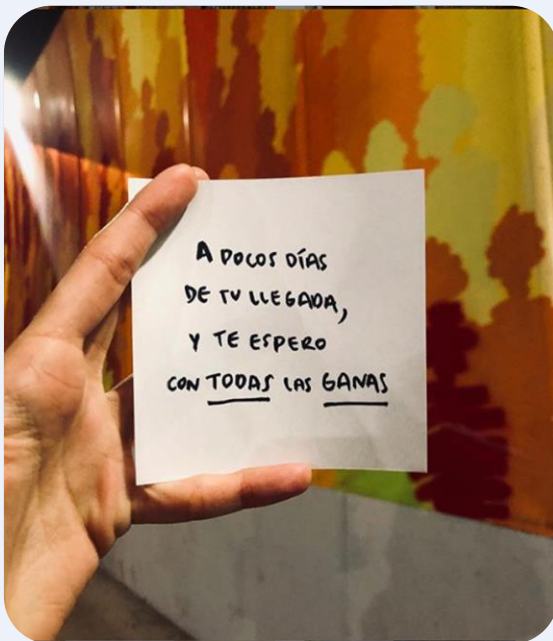 A POCOS DÍAS
DE TU LLEGADA,
Y TE ESPERO
CON TODAS LAS GANAS